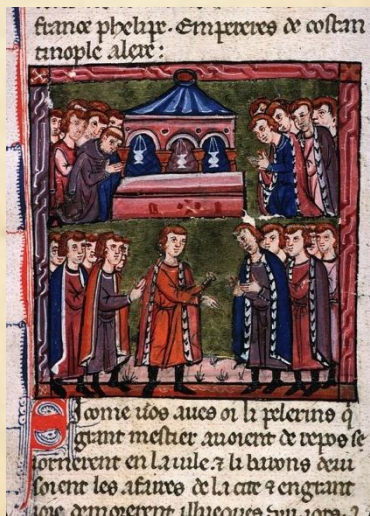 france phelipe. Empereres de costan
tinople alexe:
Si come uos aues oi li pelerins q
grant mestier auoient de repos se
iornerent en la uile ⁊ li barons deui
soient les afaires de la cite ⁊ en grant
ioie demorerent illueques